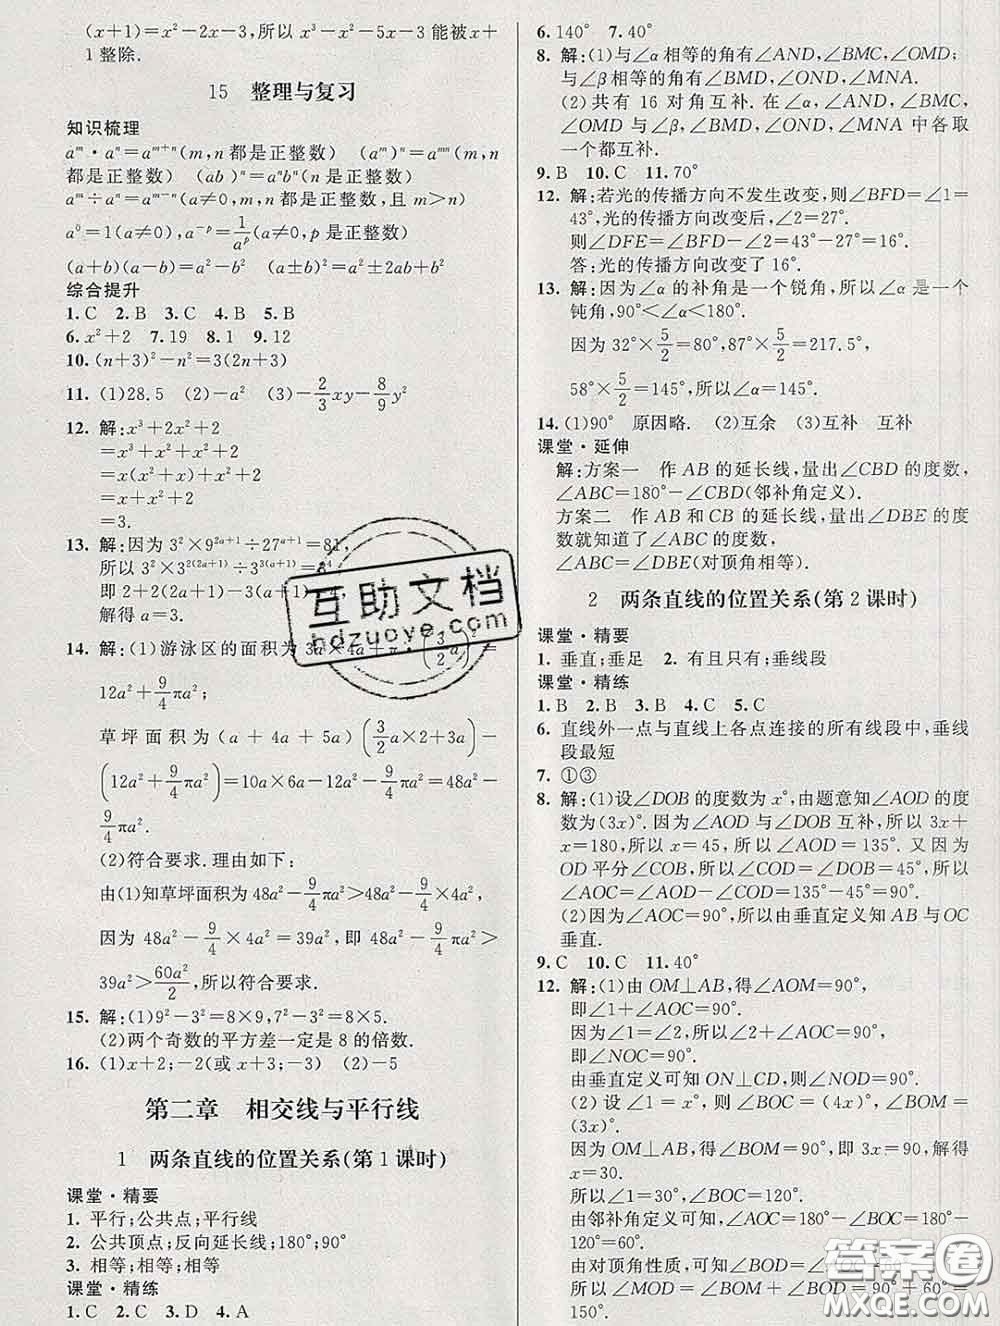 (x+1)=x²-2x-3,所以 x³-x²-5x-3 能被 x+
1 整除.
15 整理与复习
知识梳理
aᵐ·aⁿ=aᵐ⁺ⁿ(m,n 都是正整数) (aᵐ)ⁿ=aᵐⁿ(m,n
都是正整数) (ab)ⁿ=aⁿbⁿ(n 是正整数)
aᵐ÷aⁿ=aᵐ⁻ⁿ(a≠0,m,n 都是正整数,且 m>n)
a⁰=1(a≠0),a⁻ᵖ=1/aᵖ(a≠0,p 是正整数)
(a+b)(a-b)=a²-b² (a±b)²=a²±2ab+b²
综合提升
1.C 2.B 3.C 4.B 5.B
6.x²+2 7.19 8.1 9.12
10.(n+3)²-n²=3(2n+3)
11.(1)28.5 (2)-a² (3)-2/3xy-8/9y²
12.解:x³+2x²+2
=x³+x²+x²+2
=x(x²+x)+x²+2
=x+x²+2
=3.
13.解:因为 3²×9²ᵃ⁺¹÷27ᵃ⁺¹=81,
所以 3²×3²⁽²ᵃ⁺¹⁾÷3³⁽ᵃ⁺¹⁾=3⁴,
即 2+2(2a+1)-3(a+1)=4,
解得 a=3.
14.解:(1)游泳区的面积为 3a×4a+π·(3/2a)²=
12a²+9/4πa²;
草坪面积为(a+4a+5a)(3/2a×2+3a)-
(12a²+9/4πa²)=10a×6a-12a²-9/4πa²=48a²-
9/4πa².
(2)符合要求.理由如下:
由(1)知草坪面积为 48a²-9/4πa²>48a²-9/4×4a²,
因为 48a²-9/4×4a²=39a²,即 48a²-9/4πa²>
39a²>60a²/2,所以符合要求.
15.解:(1)9²-3²=8×9,7²-3²=8×5.
(2)两个奇数的平方差一定是 8 的倍数.
16.(1)x+2;-2(或 x+3;-3) (2)-5
第二章 相交线与平行线
1 两条直线的位置关系(第 1 课时)
课堂·精要
1.平行;公共点;平行线
2.公共顶点;反向延长线;180°;90°
3.相等;相等;相等
课堂·精练
1.C 2.C 3.D 4.A
6.140° 7.40°
8.解:(1)与∠α 相等的角有∠AND,∠BMC,∠OMD;
与∠β 相等的角有∠BMD,∠OND,∠MNA.
(2)共有 16 对角互补.在∠α,∠AND,∠BMC,
∠OMD 与∠β,∠BMD,∠OND,∠MNA 中各取
一个都互补.
9.B 10.C 11.70°
12.解:若光的传播方向不发生改变,则∠BFD=∠1=
43°,光的传播方向改变后,∠2=27°.
则∠DFE=∠BFD-∠2=43°-27°=16°.
答:光的传播方向改变了 16°.
13.解:因为∠α 的补角是一个锐角,所以∠α 是一个
钝角,90°<∠α<180°.
因为 32°×5/2=80°,87°×5/2=217.5°,
58°×5/2=145°,所以∠α=145°.
14.(1)90° 原因略. (2)互余 (3)互补 互补
课堂·延伸
解:方案一 作 AB 的延长线,量出∠CBD 的度数,
∠ABC=180°-∠CBD(邻补角定义).
方案二 作 AB 和 CB 的延长线,量出∠DBE 的度
数就知道了∠ABC 的度数.
∠ABC=∠DBE(对顶角相等).
2 两条直线的位置关系(第 2 课时)
课堂·精要
1.垂直;垂足 2.有且只有;垂线段
课堂·精练
1.B 2.B 3.B 4.C 5.C
6.直线外一点与直线上各点连接的所有线段中,垂线
段最短
7.①③
8.解:(1)设∠DOB 的度数为 x°,由题意知∠AOD 的度
数为(3x)°.因为∠AOD 与∠DOB 互补,所以 3x+
x=180,所以 x=45,所以∠AOD=135°.又因为
OD 平分∠COB,所以∠COD=∠DOB=45°,所以
∠AOC=∠AOD-∠COD=135°-45°=90°.
(2)因为∠AOC=90°,所以由垂直定义知 AB 与 OC
垂直.
9.C 10.C 11.40°
12.解:(1)由 OM⊥AB,得∠AOM=90°,
即∠1+∠AOC=90°.
因为∠1=∠2,所以∠2+∠AOC=90°,
即∠NOC=90°.
由垂直定义可知 ON⊥CD,则∠NOD=90°.
(2)设∠1=x°,则∠BOC=(4x)°,∠BOM=
(3x)°.
因为 OM⊥AB,得∠BOM=90°,即 3x=90,解得
x=30.
所以∠1=30°,∠BOC=120°.
由邻补角定义可知,∠AOC=180°-∠BOC=180°-
120°=60°.
由对顶角性质可知,∠BOD=
所以∠MOD=∠BOM+∠BOD=90°+60°=
150°.
互助文档
hdzuoye.com
答案圈
MXQE.COM